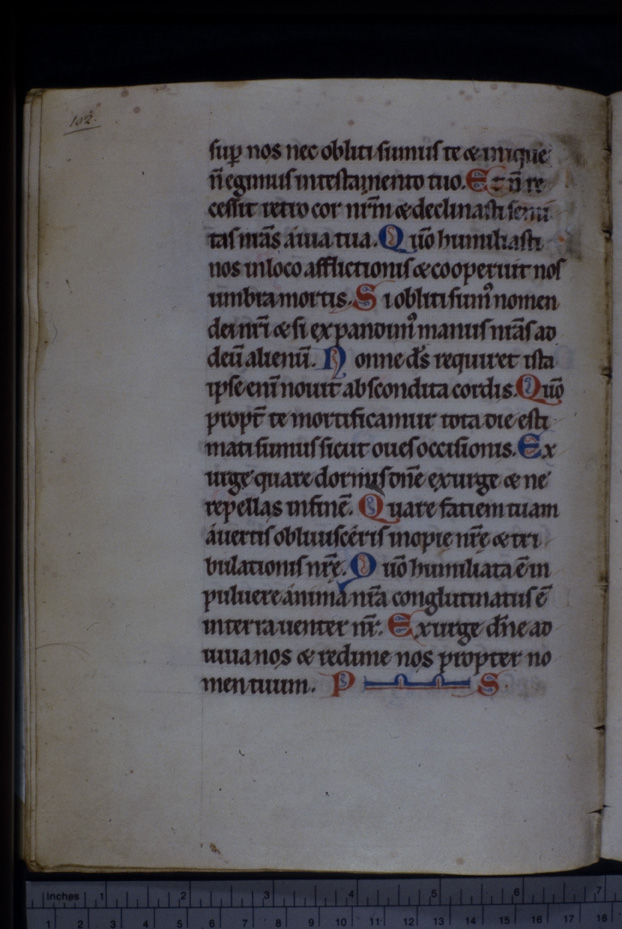 102.
sup nos nec obliti sumus te & inique
n̄ egimus intestamento tuo. Et n̄ re
cessit retro cor nr̄m & declinasti semi
tas nr̄as a uia tua. Qūo humiliasti
nos inloco afflictionis & cooperuit nos
umbra mortis. Si obliti sum᷒ nomen
dei nr̄i & si expandim᷒ manus nr̄as ad
deū alienū. Nonne d̄s requiret ista
ipse enī nouit abscondita cordis. Qūo
propt̄ te mortificamur tota die esti
mati sumus sicut oues occisionis. Ex
urge quare dormis dn̄e exurge & ne
repellas infinē. Quare faciem tuam
auertis obliuisceris inopie nr̄e & tri
bulationis nr̄e. Qūo humiliata ē in
puluere anima nr̄a conglutinatus ē
interra uenter nr̄. Exurge dn̄e ad
iuua nos & redime nos propter no
men tuum. P S
Inches 1 2 3 4 5 6 7
1 2 3 4 5 6 7 8 9 10 11 12 13 14 15 16 17 18